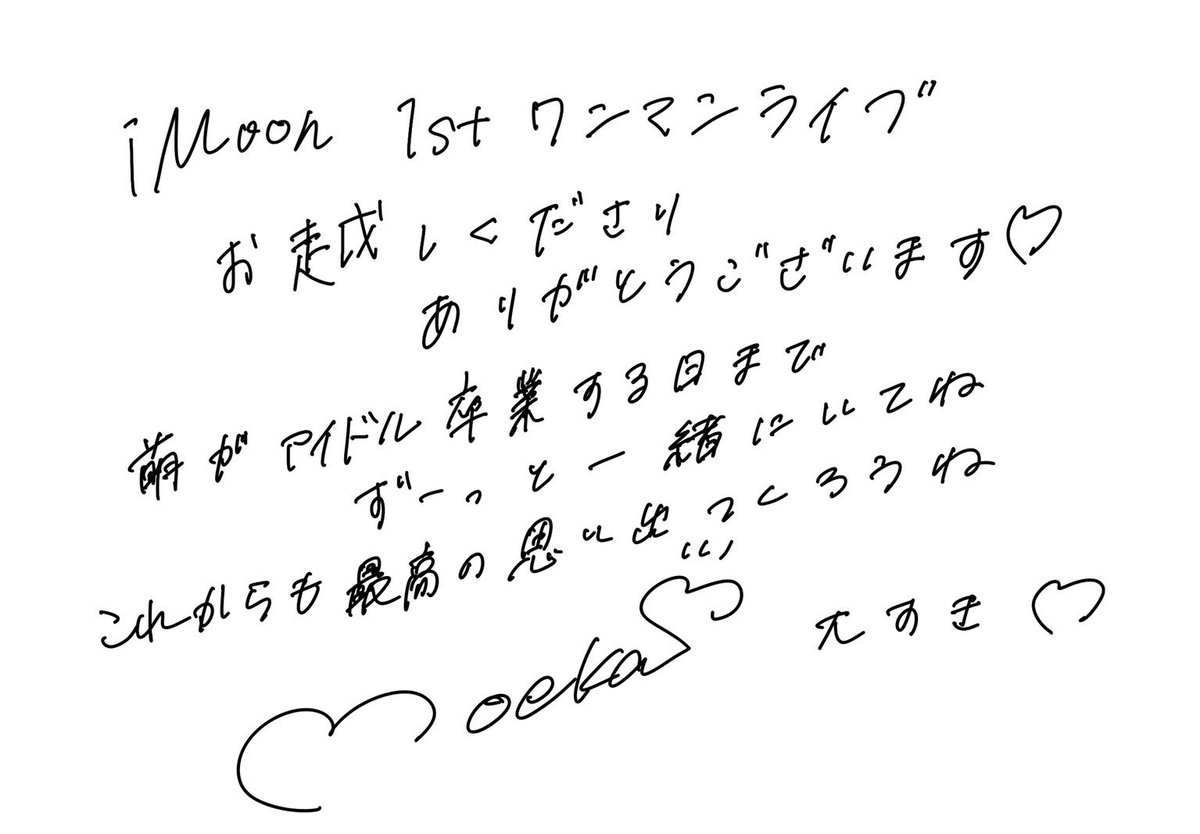 iMoon 1st ワンマンライブ
お越しくださり
ありがとうございます♡
萌がアイドル卒業する日まで
ずーっと一緒にいてね
これからも最高の思い出つくろうね
大すき♡
Moeka